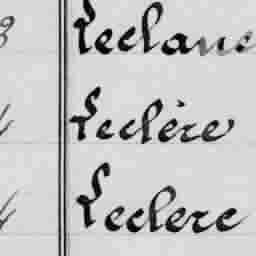 Leclanc
Leclère
Leclerc